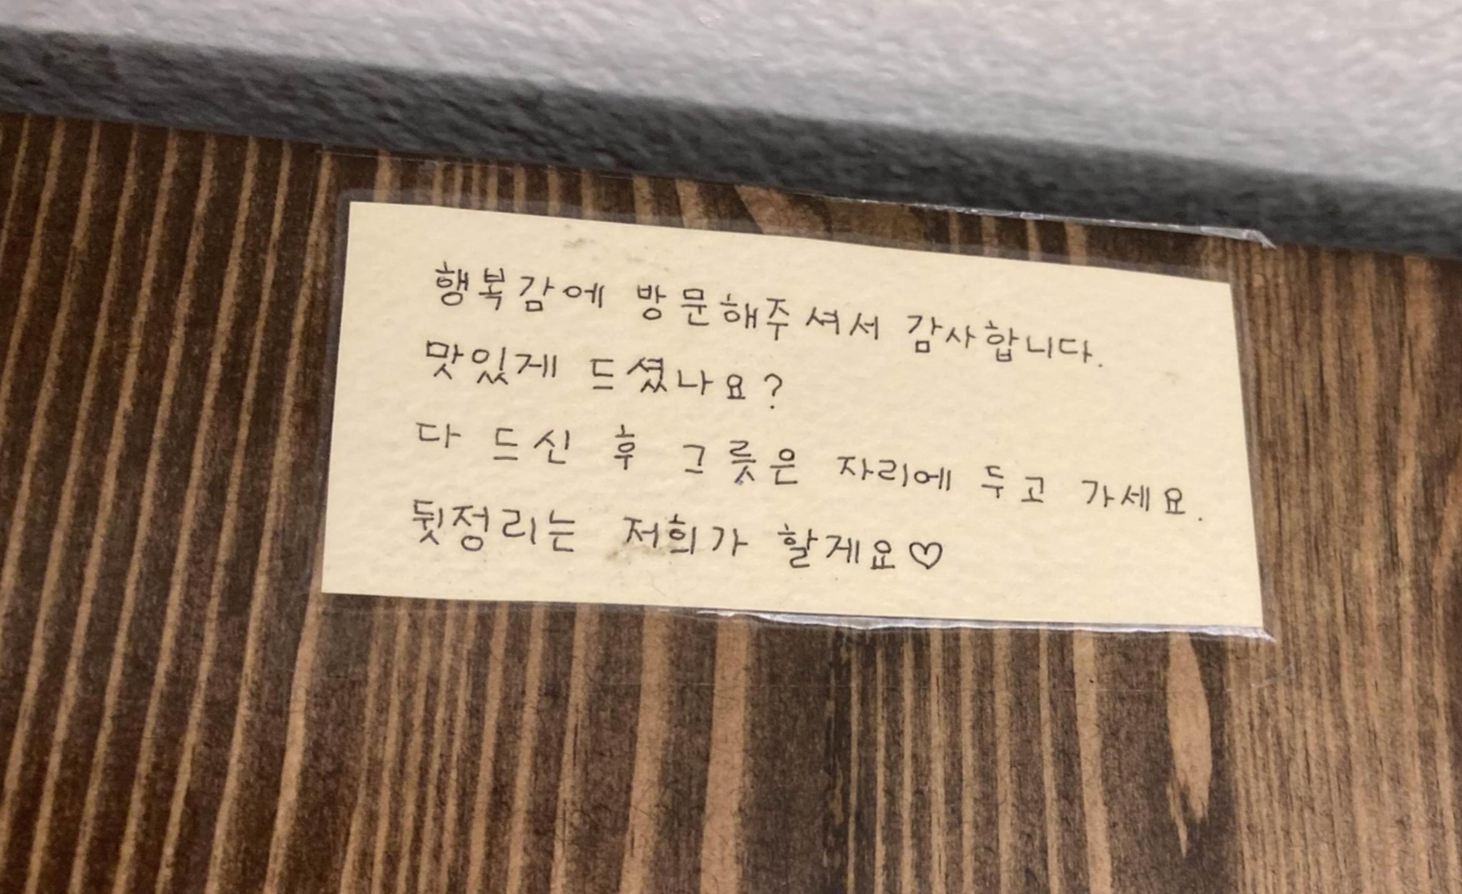 행복감에 방문해주셔서 감사합니다.
맛있게 드셨나요?
다 드신 후 그릇은 자리에 두고 가세요.
뒷정리는 저희가 할게요♡